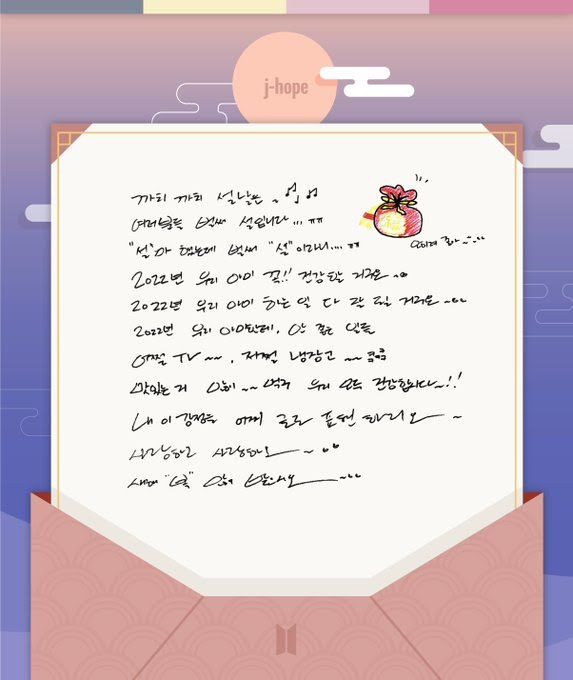 j-hope
까치 까치 설날은 ~
여러분들 벌써 설입니다... ㅠㅠ
"설"마 했는데 벌써 "설"이라니... ㅠㅠ
2022년 우리 아미 꼭!! 건강할 거구요 ~
2022년 우리 아미 하는 일 다 잘 될 거구요 ~
2022년 우리 아미한테, 안 좋은 일들
어쩔 TV ~~, 저쩔 냉장고 ~~ ㅋㅋㅋ
맛있는 거 많이 ~~ 먹구 우리 모두 건강합시다~!!
내 이 감정을 어찌 글로 표현 하리오 ~
사랑하고 사랑하오 ~
새해 "복" 많이 받으시오 ~